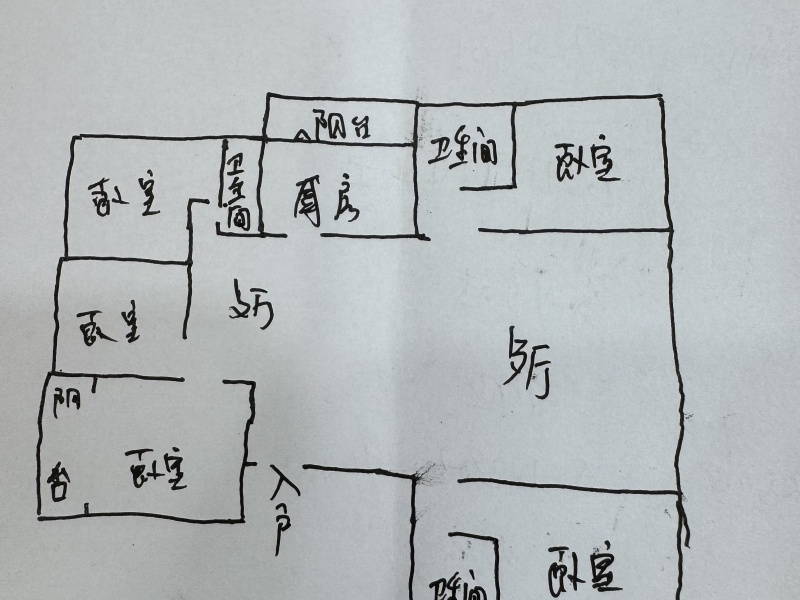 阳台
卫生间
卧室
卧室
卫生间
厨房
卧室
客厅
客厅
阳台
卧室
入户
卫生间
卧室